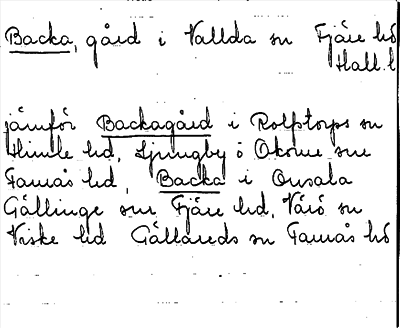 Backa, gård i Vallda sn Fjäre hd
Hall. l
jämför Backagård i Rolfstorps sn
Himle hd, Ljungby o Okome snr
Faurås hd, Backa i Onsala
Gällinge snr Fjäre hd, Värö sn
Viske hd Gällareds sn Faurås hd